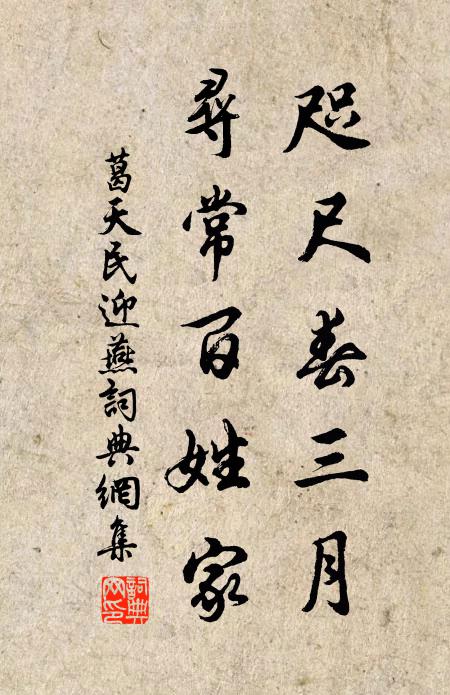 咫尺春三月
尋常百姓家
葛天民迎燕詞典網集
詞典網印